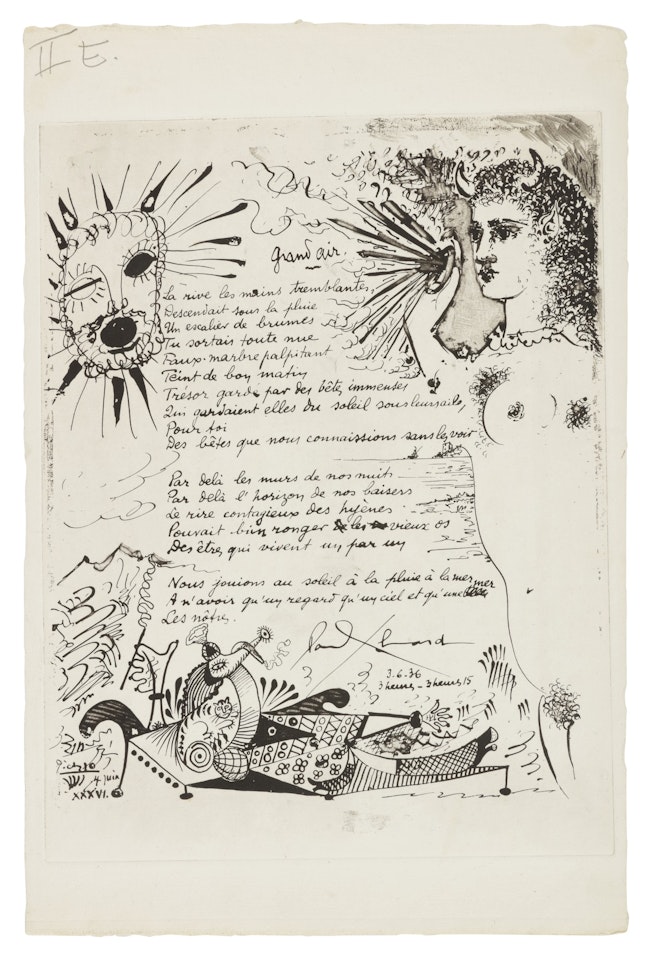 II E.
Grand air.
La rive les mains tremblantes,
Descendait sous la pluie
Un escalier de brumes
Tu sortais toute nue
Faux marbre palpitant
Teint de bon matin
Tresor gardé par des bêtes immenses
Qui gardaient elles du soleil sous leurs ailes,
Pour toi
Des bêtes que nous connaissions sans les voir
Par delà les murs de nos nuits
Par delà l'horizon de nos baisers
Le rire contagieux des hyènes
Pouvait bien ronger de vieux os
Des êtres qui vivent un par un
Nous jouions au soleil à la pluie à la mer mer
A n'avoir qu'un regard qu'un ciel et qu'une
Les nôtres.
Paul Eluard
3.6.36
3 heures – 3 heures 15
Picasso
4 juin
XXXVI.